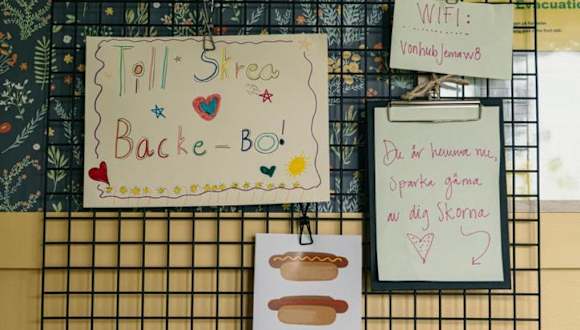 Till Skrea
Backe-BO!
WIFI:
Vonhubjemaw8
Du är hemma nu,
sparka gärna
av dig skorna
Evacuati